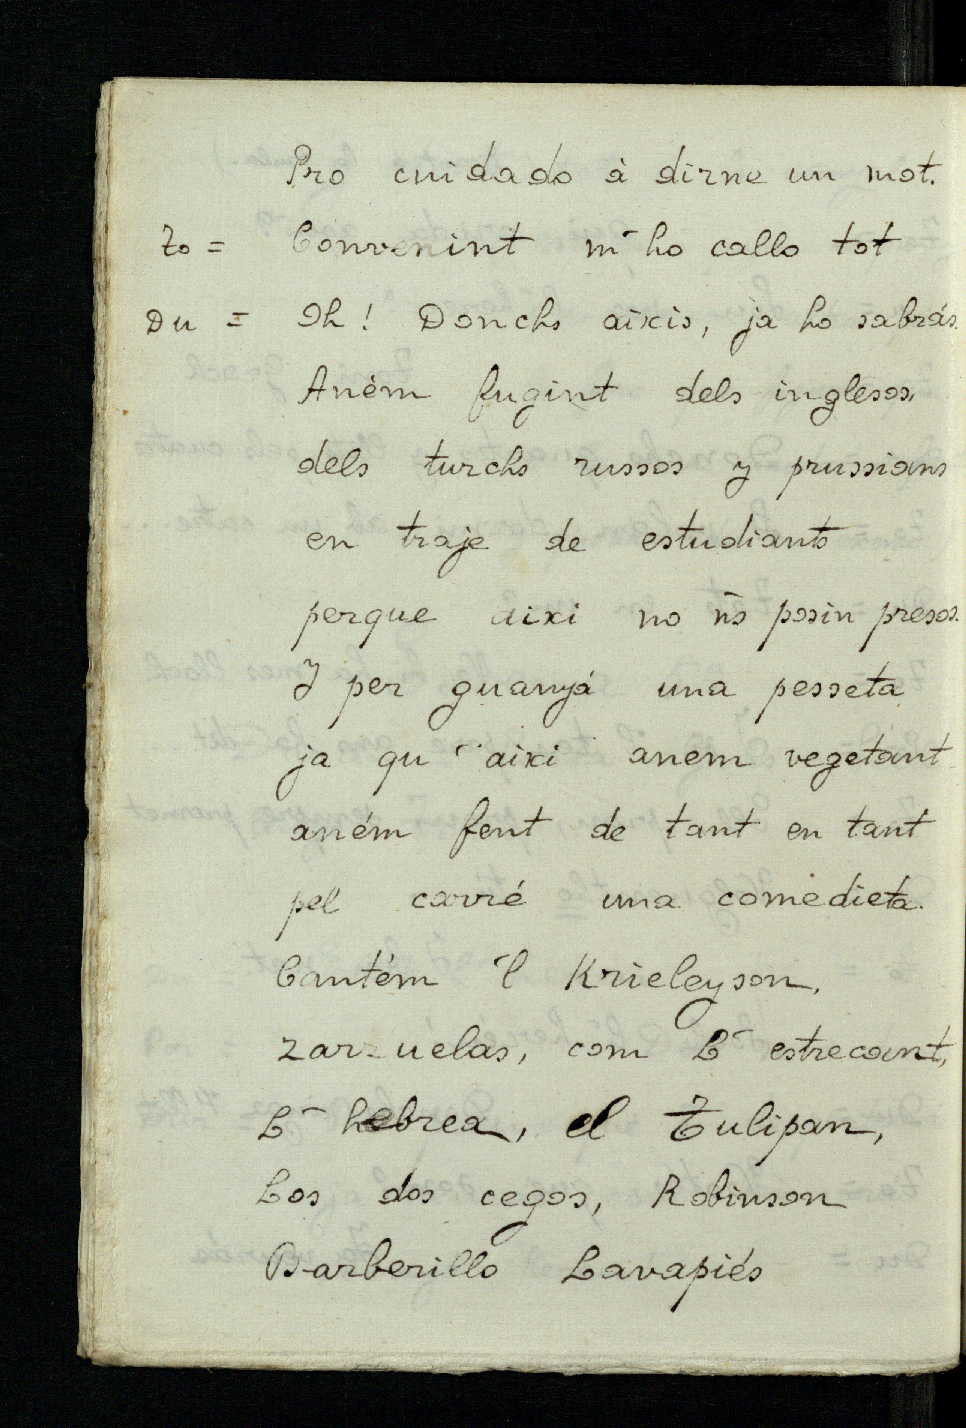 Pro cuidado á dirne un mot.
To = Convenint m' ho callo tot
Du = Oh! Donchs aixis, ja ho sabrás.
Aném fugint dels inglesos,
dels turchs russos y prussians
en traje de estudiants
perque aixi no 'ns posin presos.
Y per guanyá una pesseta
ja qu' aixi anem vegetant
aném fent de tant en tant
pel carré una comedieta.
Cantém 'l Krieleyson,
zarzuelas, com L' estrecant,
L' hebrea, el Tulipan,
Los dos cegos, Robinson
Barberillo Lavapiés